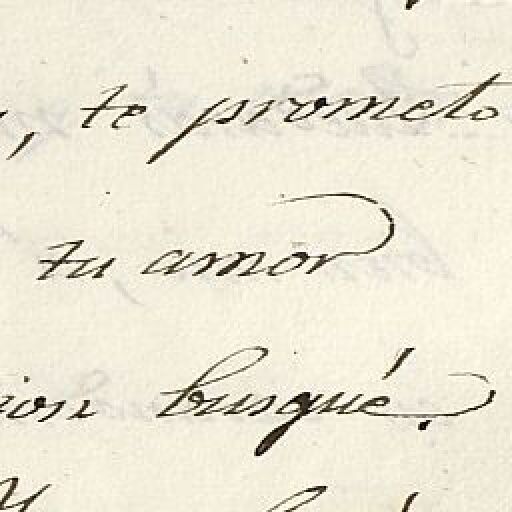 , te prometo
tu amor
ion busqué.